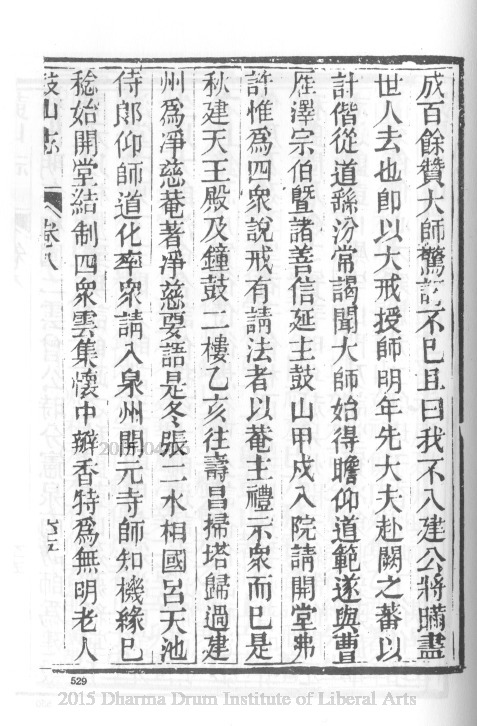 成百餘贊大師驚訝不已且曰我不入建公將瞞盡
世人去也卽以大戒授師明年先大夫赴闕之蕃以
計偕從道繇汾常謁聞大師始得瞻仰道範遂與曹
雁澤宗伯曁諸善信延主鼓山甲戌入院請開堂弗
許惟爲四衆說戒有請法者以菴主禮示衆而已是
秋建天王殿及鐘鼓二樓乙亥往壽昌掃塔歸過建
州爲凈慈菴著凈慈要語是冬張二水相國呂天池
侍郎仰師道化率衆請入泉州開元寺師知機緣已
稔始開堂結制四衆雲集懷中瓣香特爲無明老人
鼓山志 卷八
529
2015 Dharma Drum Institute of Liberal Arts